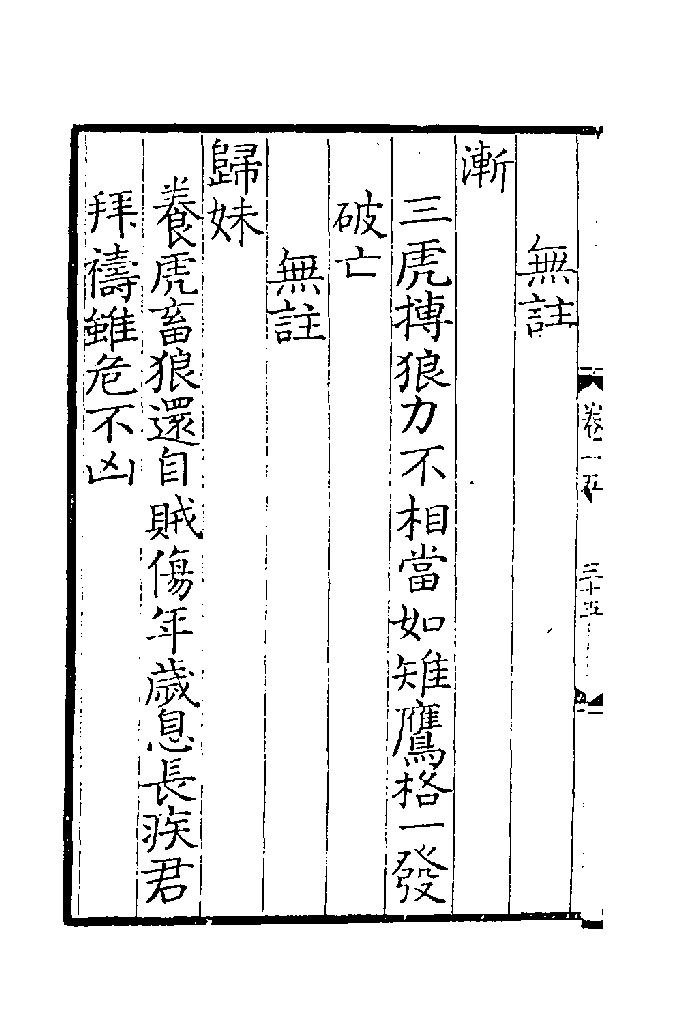 無註
漸
三虎搏狼力不相當如雉鷹格一發
破亡
無註
歸妹
養虎畜狼還自賊傷年歲息長疾君
拜禱雖危不凶
卷一五
三十五